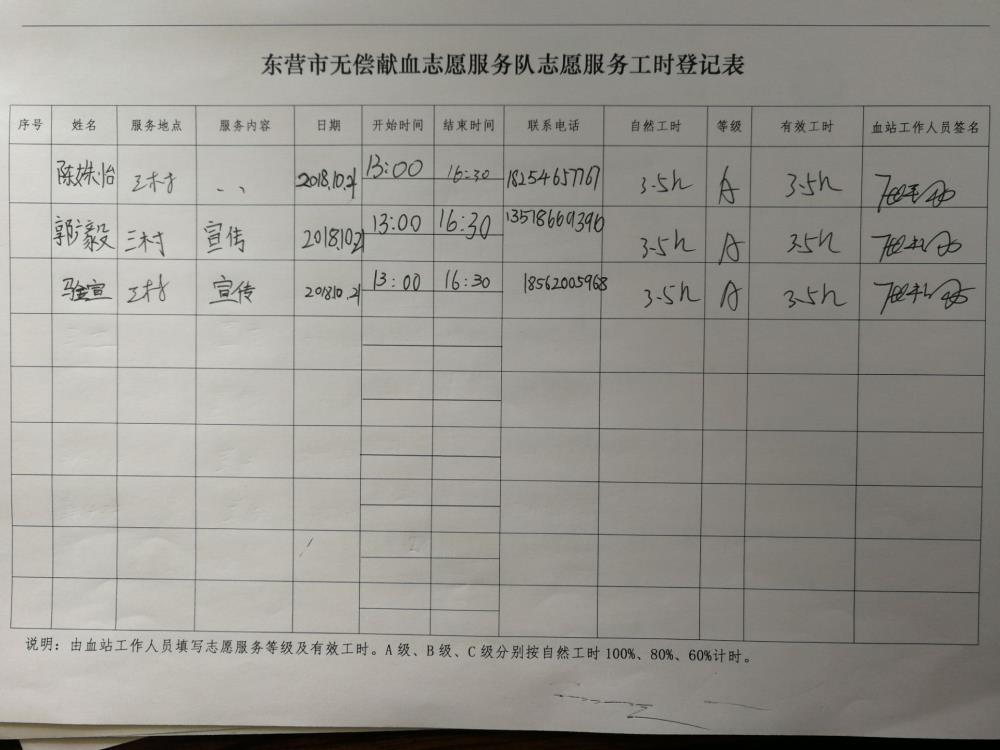 东营市无偿献血志愿服务队志愿服务工时登记表
序号 姓名 服务地点 服务内容 日期 开始时间 结束时间 联系电话 自然工时 等级 有效工时 血站工作人员签名
陈姝怡 三村 、、 2018.10.21 13:00 16:30 18254657767 3.5h A 3.5h
郭毅 三村 宣传 2018.10.21 13:00 16:30 13518669390 3.5h A 3.5h
三村 宣传 2018.10.21 13:00 16:30 18562005968 3.5h A 3.5h
说明：由血站工作人员填写志愿服务等级及有效工时。A级、B级、C级分别按自然工时100%、80%、60%计时。